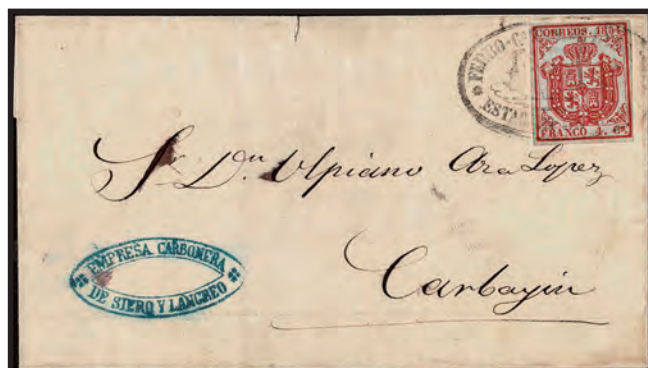 FERRO-C
ESTA
CORREOS. 185
FRANCO 4. Cs.
Sr. Dn. Ulpiano Ara Lopez
Carbayin
EMPRESA CARBONERA
DE SIERO Y LANGREO